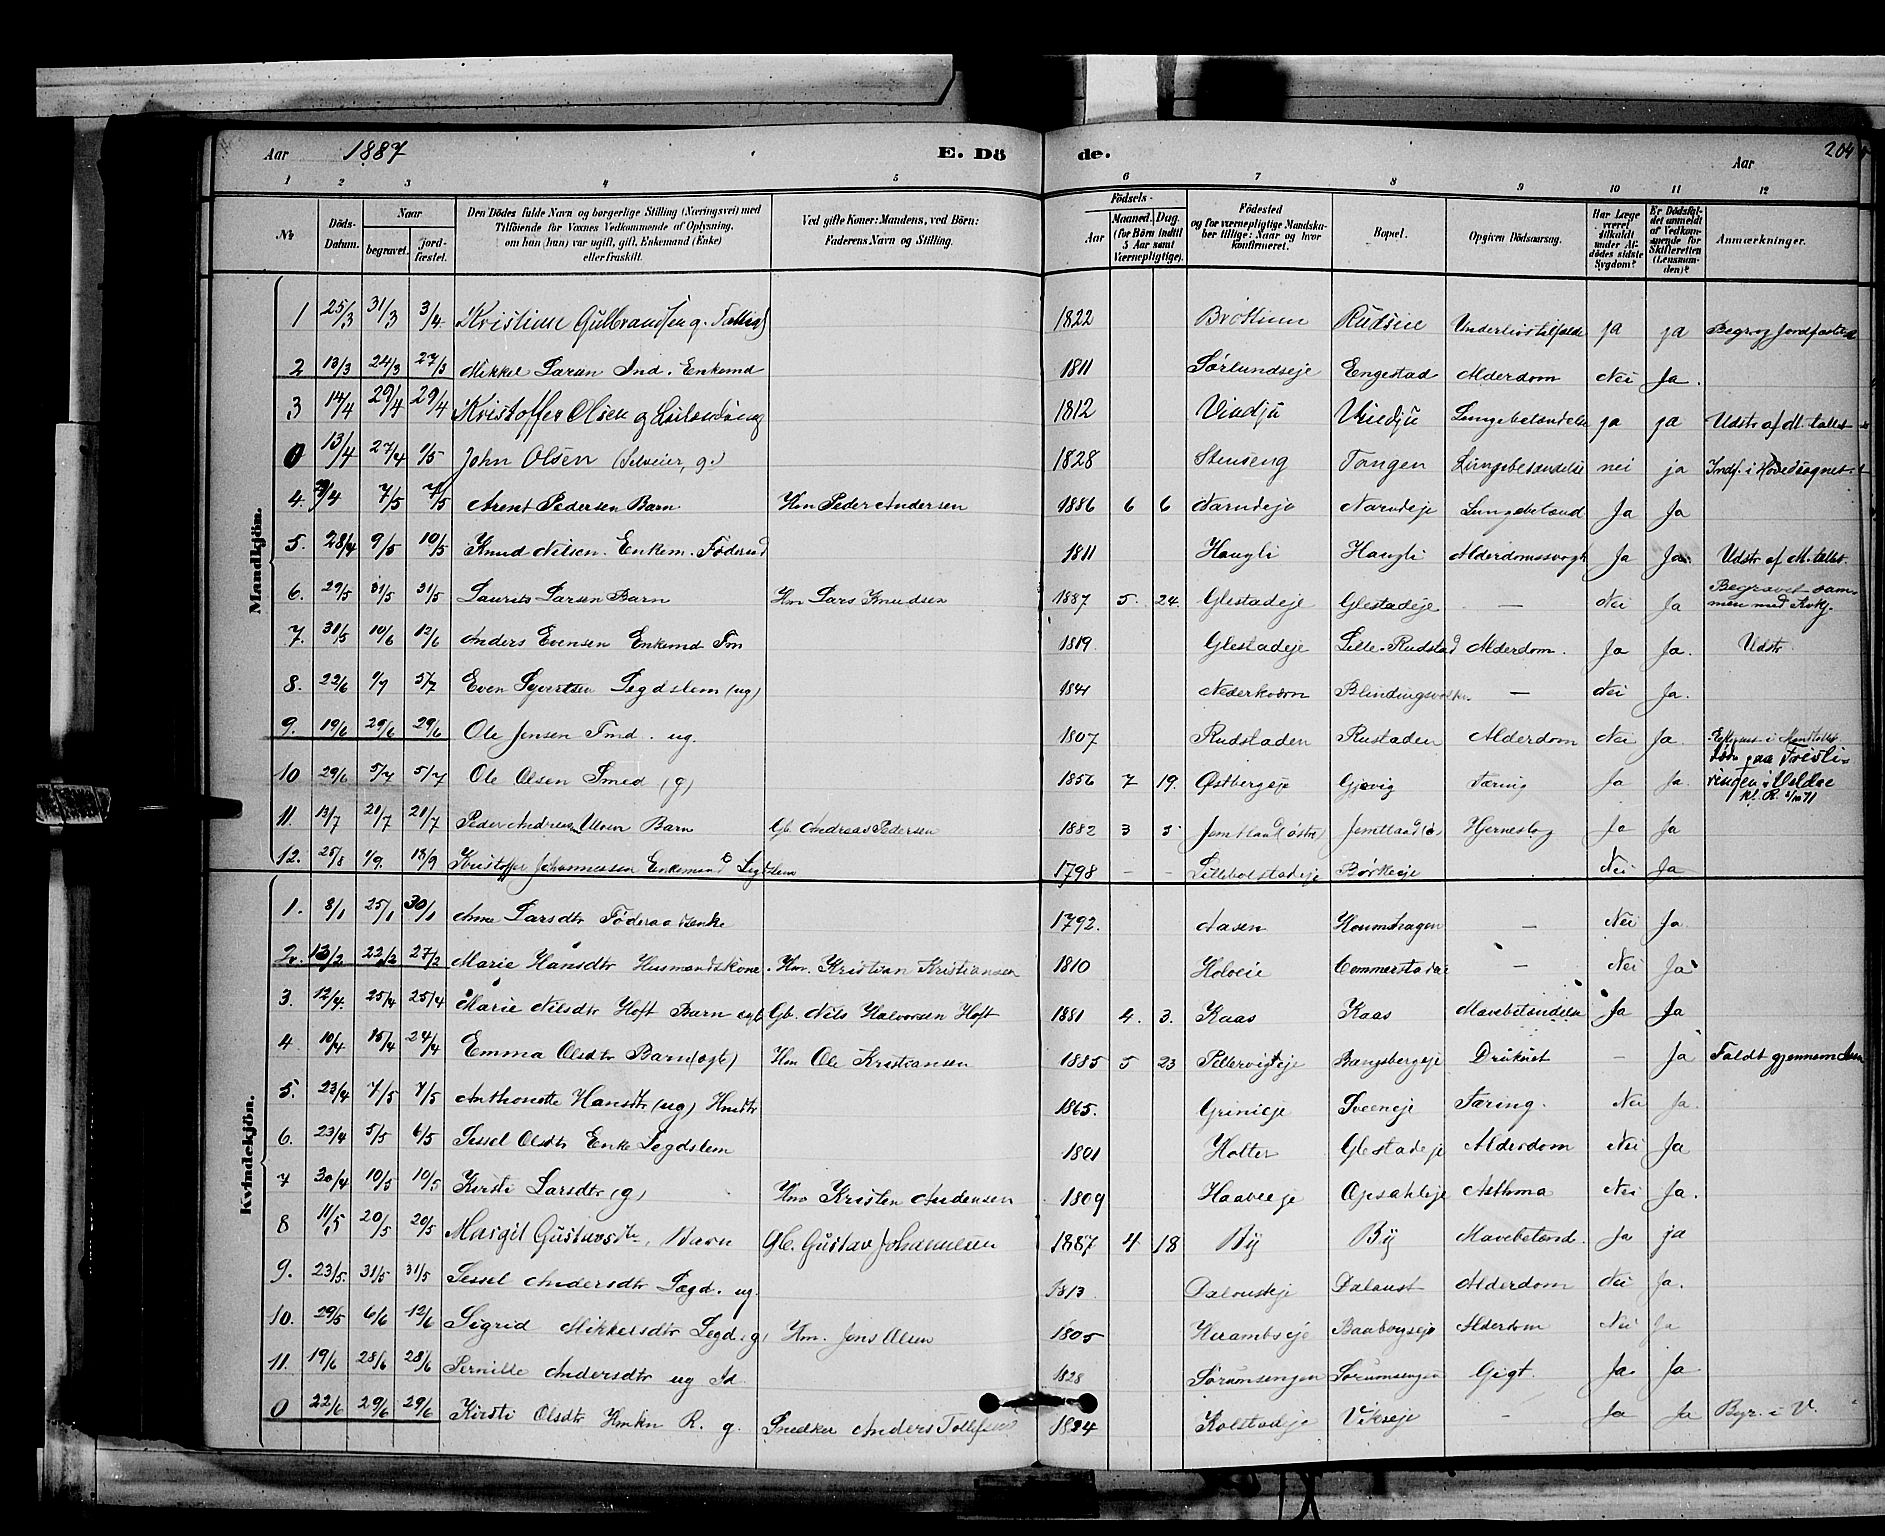 Aar 1887 E. Dö de. Aar 204
1 2 3 4 5 6 7 8 9 10 11 12
№ Döds-Datum. Naar begravet. jord-fæstet. Den Dödes fulde Navn og borgerlige Stilling (Næringsvei) med Tilföiende for Voxnes Vedkommende af Oplysning, om han (hun) var ugift, gift, Enkemand (Enke) eller fraskilt. Ved gifte Koner: Mandens, ved Börn: Faderens Navn og Stilling. Födsels- Aar Maaned. Dag. (for Börn indtil 5 Aar samt Værnepligtige). Födested og for værnepligtige Mandskaber tillige: Naar og hvor konfirmeret. Bopæl. Opgiven Dödsaarsag. Har Læge været tilkaldt under Afdödes sidste Sygdom? Er Dödsfaldet anmeldt af Vedkommende for Skifteretten (Lensmanden)? Anmærkninger.
Mandkjön.
1 25/3 31/3 3/4 Kristian Gulbrandsen g. 1822 Brøttum Rudseie Underlivstilfælde ja ja Begr. og jordfæstet
2 13/3 24/3 27/3 Mikkel Larsen Ind. Enkemd 1811 Sørlundseje Engestad Alderdom Nei Ja.
3 14/4 29/4 29/4 Kristoffer Olsen g 1812 Vindju Vindju Lungebetændelse ja ja Udstr af M. tallet
0 13/4 27/4 1/5 John Olsen Selveier, g. 1828 Stenseng Tangen Lungebetændelse nei ja Indf. i Hovedsognet.
4. /4 7/5 7/5 Arent Pedersen Barn Hm Peder Andersen 1886 6 6 Narudeje Narudeje Lungebetænd Ja Ja
5. 28/4 9/5 10/5 Knud Nilsen. Enkem. Føderaad 1811 Haugli Haugli Alderdomssvagh Ja Ja. Udstr af M. tallet.
6. 29/5 31/5 31/5 Laurits Larsen Barn Hm Lars Knudsen 1887 5. 24. Glestadeje Glestadeje. — Nei Ja Begravet sammen med
7. 31/5 10/6 12/6 Anders Evensen Enkemd Fm 1819. Glestadeje Lille-Rudstad Alderdom. Ja Ja. Udstr
8. 22/6 1/7 3/7 Even Syvertsen Legdslem (ug) 1841 Nederkvern — Nei Ja.
9. 19/6 29/6 29/6 Ole Jensen Tmd. ug. 1807 Rudstaden Rustaden Alderdom Nei Ja.
10 29/6 5/7 5/7 Ole Olsen Smed (g) 1856 7 19. Østbergeje Gjøvig Tæring Ja Ja.
11. 13/7 21/7 21/7 Peder Andreas Ulven Barn Gb. Andreas Pedersen 1882 3 5 Jemtland (østre) Jemtland (ø Hjerneslag Ja Ja
12. 25/8 1/9. 18/9 Kristoffer Johannessen Enkemand Legdslem 1798 — — Lillebolstadeje Børkeeje Nei Ja
Kvindekjön.
1. 8/1 25/1 30/1 Anne Larsdtr Føderaadsenke 1792. Aasen Houmshagen — Nei Ja
2. 13/2 22/2 27/2 Marie Hansdtr Husmandskone. Hm. Kristian Kristiansen 1810 Holoeie Commerstadeie — Nei Ja
3. 12/4. 25/4 25/4 Marie Nilsdtr Hoft Barn ægt Gb. Nils Halvorsen Hoft 1881 4. 3. Kaas Kaas Mavebetændelse Ja Ja
4. 10/4 15/4 24/4 Emma Olsdtr Barn (ægt) Hm Ole Kristiansen 1885 5 23 Pellervigeje Bangsbergeje Druknet — Ja Faldt gjennem Isen
5. 23/4 7/5 7/5 Anthonette Hansdtr (ug) Hmdtr 1865. Grinieje Sveeneje Tæring. Nei Ja.
6. 23/4 5/5 6/5 Sessel Olsdtr Enke Legdslem 1801 Holter Glestadeje Alderdom Nei Ja
7 30/4 10/5 10/5 Kirsti Larsdtr (g) Hm Kristen Andersen 1809 Haaveeje Opsahleje Asthma Nei Ja.
8 11/5 20/5 20/5 Margit Gustavsdtr, Barn Gb. Gustav Johannesen 1887 4 18 By By Mavebetænd. Ja ja
9. 23/5. 31/5 31/5 Sessel Andersdtr Lægd. ug. 1813. Dalousteje Daloust Alderdom Nei Ja.
10. 29/5 6/6 12/6 Sigrid Mikkelsdtr Legd. (g) Hm. Jens Olsen 1805 Herambseje Baabergseje Alderdom Nei Ja
11. 19/6 28/6 28/6 Pernille Andersdtr ug Id 1828 Sørumsengen Sørumsengen Gigt. Ja. Ja
0 22/6 29/6 29/6 Kirsti Olsdtr Hmkn R. g. Snedker Anders Tollefsen 1824 Kolstadeje Vikseje — Ja Ja Byr. i V.